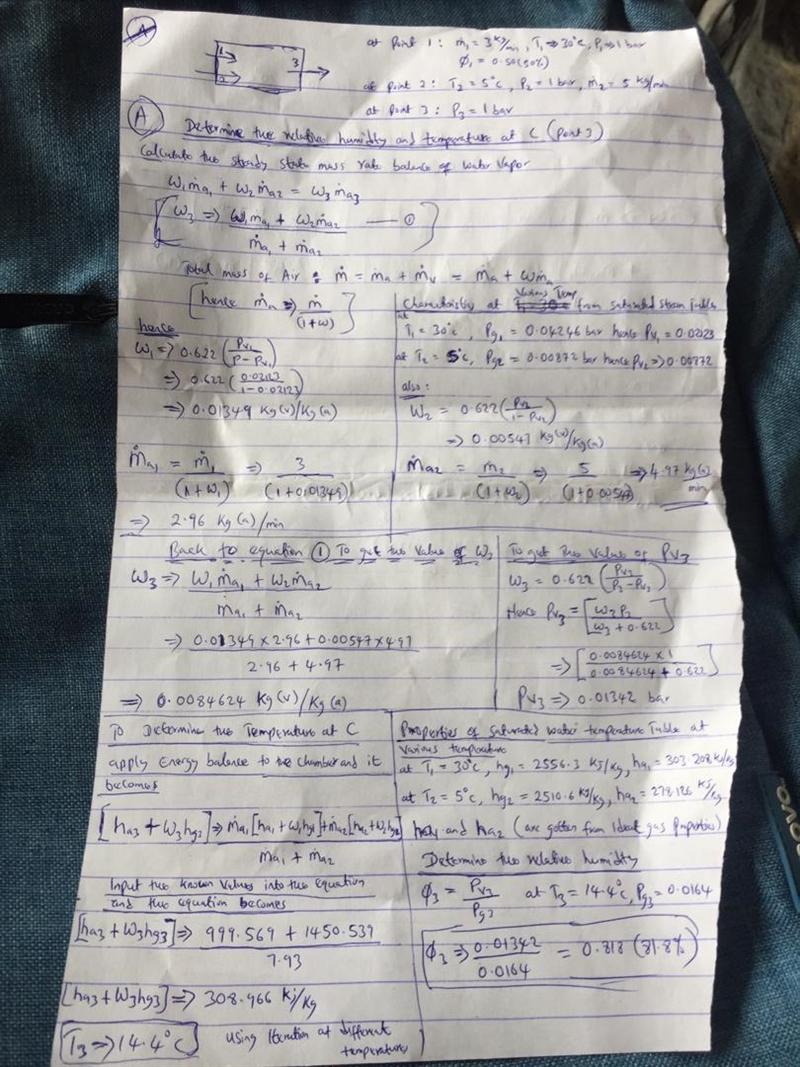 A
1
2
3
at Point 1 : ṁ₁ = 3 kg/min, T₁ => 30°C, P₁ => 1 bar
Φ₁ = 0.50 (50%)
at Point 2 : T₂ = 5°C, P₂ = 1 bar, ṁ₂ = 5 kg/min
at Point 3 : P₃ = 1 bar
A Determine the relative humidity and temperature at C (Point 3)
Calculate the steady state mass rate balance of water vapor
ω₁ṁa₁ + ω₂ṁa₂ = ω₃ṁa₃
[ω₃ => (ω₁ṁa₁ + ω₂ṁa₂) / (ṁa₁ + ṁa₂) —— ①]
Total mass of Air : ṁ = ṁa + ṁv = ṁa + ωṁa
[hence ṁa => ṁ/(1+ω)]
hence
ω₁ => 0.622 (Pv₁/(P - Pv₁))
=> 0.622 (0.02123/(1 - 0.02123))
=> 0.01349 Kg(v)/Kg(a)
ṁa₁ = ṁ₁/(1+ω₁) => 3/(1+0.01349)
=> 2.96 Kg(a)/min
at Various Temp from saturated steam Table
T₁ = 30°C, Pg₁ = 0.04246 bar hence Pv₁ = 0.02123
at T₂ = 5°C, Pg₂ = 0.00872 bar hence Pv₂ => 0.00872
also :
ω₂ = 0.622 (Pv₂/(1 - Pv₂))
=> 0.00547 Kg(v)/Kg(a)
ṁa₂ = ṁ₂/(1+ω₂) => 5/(1+0.00547) => 4.97 Kg(a)/min
Back to equation ① To get the value of ω₃
ω₃ => (ω₁ṁa₁ + ω₂ṁa₂) / (ṁa₁ + ṁa₂)
=> (0.01349 × 2.96 + 0.00547 × 4.97) / (2.96 + 4.97)
=> 0.0084624 Kg(v)/Kg(a)
To get the Values of Pv₃
ω₃ = 0.622 (Pv₃/(P₃ - Pv₃))
Hence Pv₃ = [ω₃P₃/(ω₃ + 0.622)]
=> [0.0084624 × 1/(0.0084624 + 0.622)]
Pv₃ => 0.01342 bar
To Determine the Temperature at C
apply Energy balance to the chamber and it
becomes
[ha₃ + ω₃hg₃] => (ṁa₁[ha₁ + ω₁hg₁] + ṁa₂[ha₂ + ω₂hg₂]) / (ṁa₁ + ṁa₂)
Input the known Values into the equation
and the equation becomes
[ha₃ + ω₃hg₃] => (999.569 + 1450.539) / 7.93
[ha₃ + ω₃hg₃] => 308.966 kJ/kg
T₃ => 14.4°C using Iteration at different
temperatures
Properties of saturated water temperature Table at
Various temperature
at T₁ = 30°C, hg₁ = 2556.3 KJ/Kg, ha₁ = 303.208 KJ/Kg
at T₂ = 5°C, hg₂ = 2510.6 KJ/Kg, ha₂ = 278.126 KJ/Kg
ha₁ and ha₂ (are gotten from Ideal gas Properties)
Determine the relative humidity
Φ₃ = Pv₃/Pg₃ at T₃ = 14.4°C, Pg₃ = 0.0164
Φ₃ => 0.01342/0.0164 = 0.818 (81.8%)